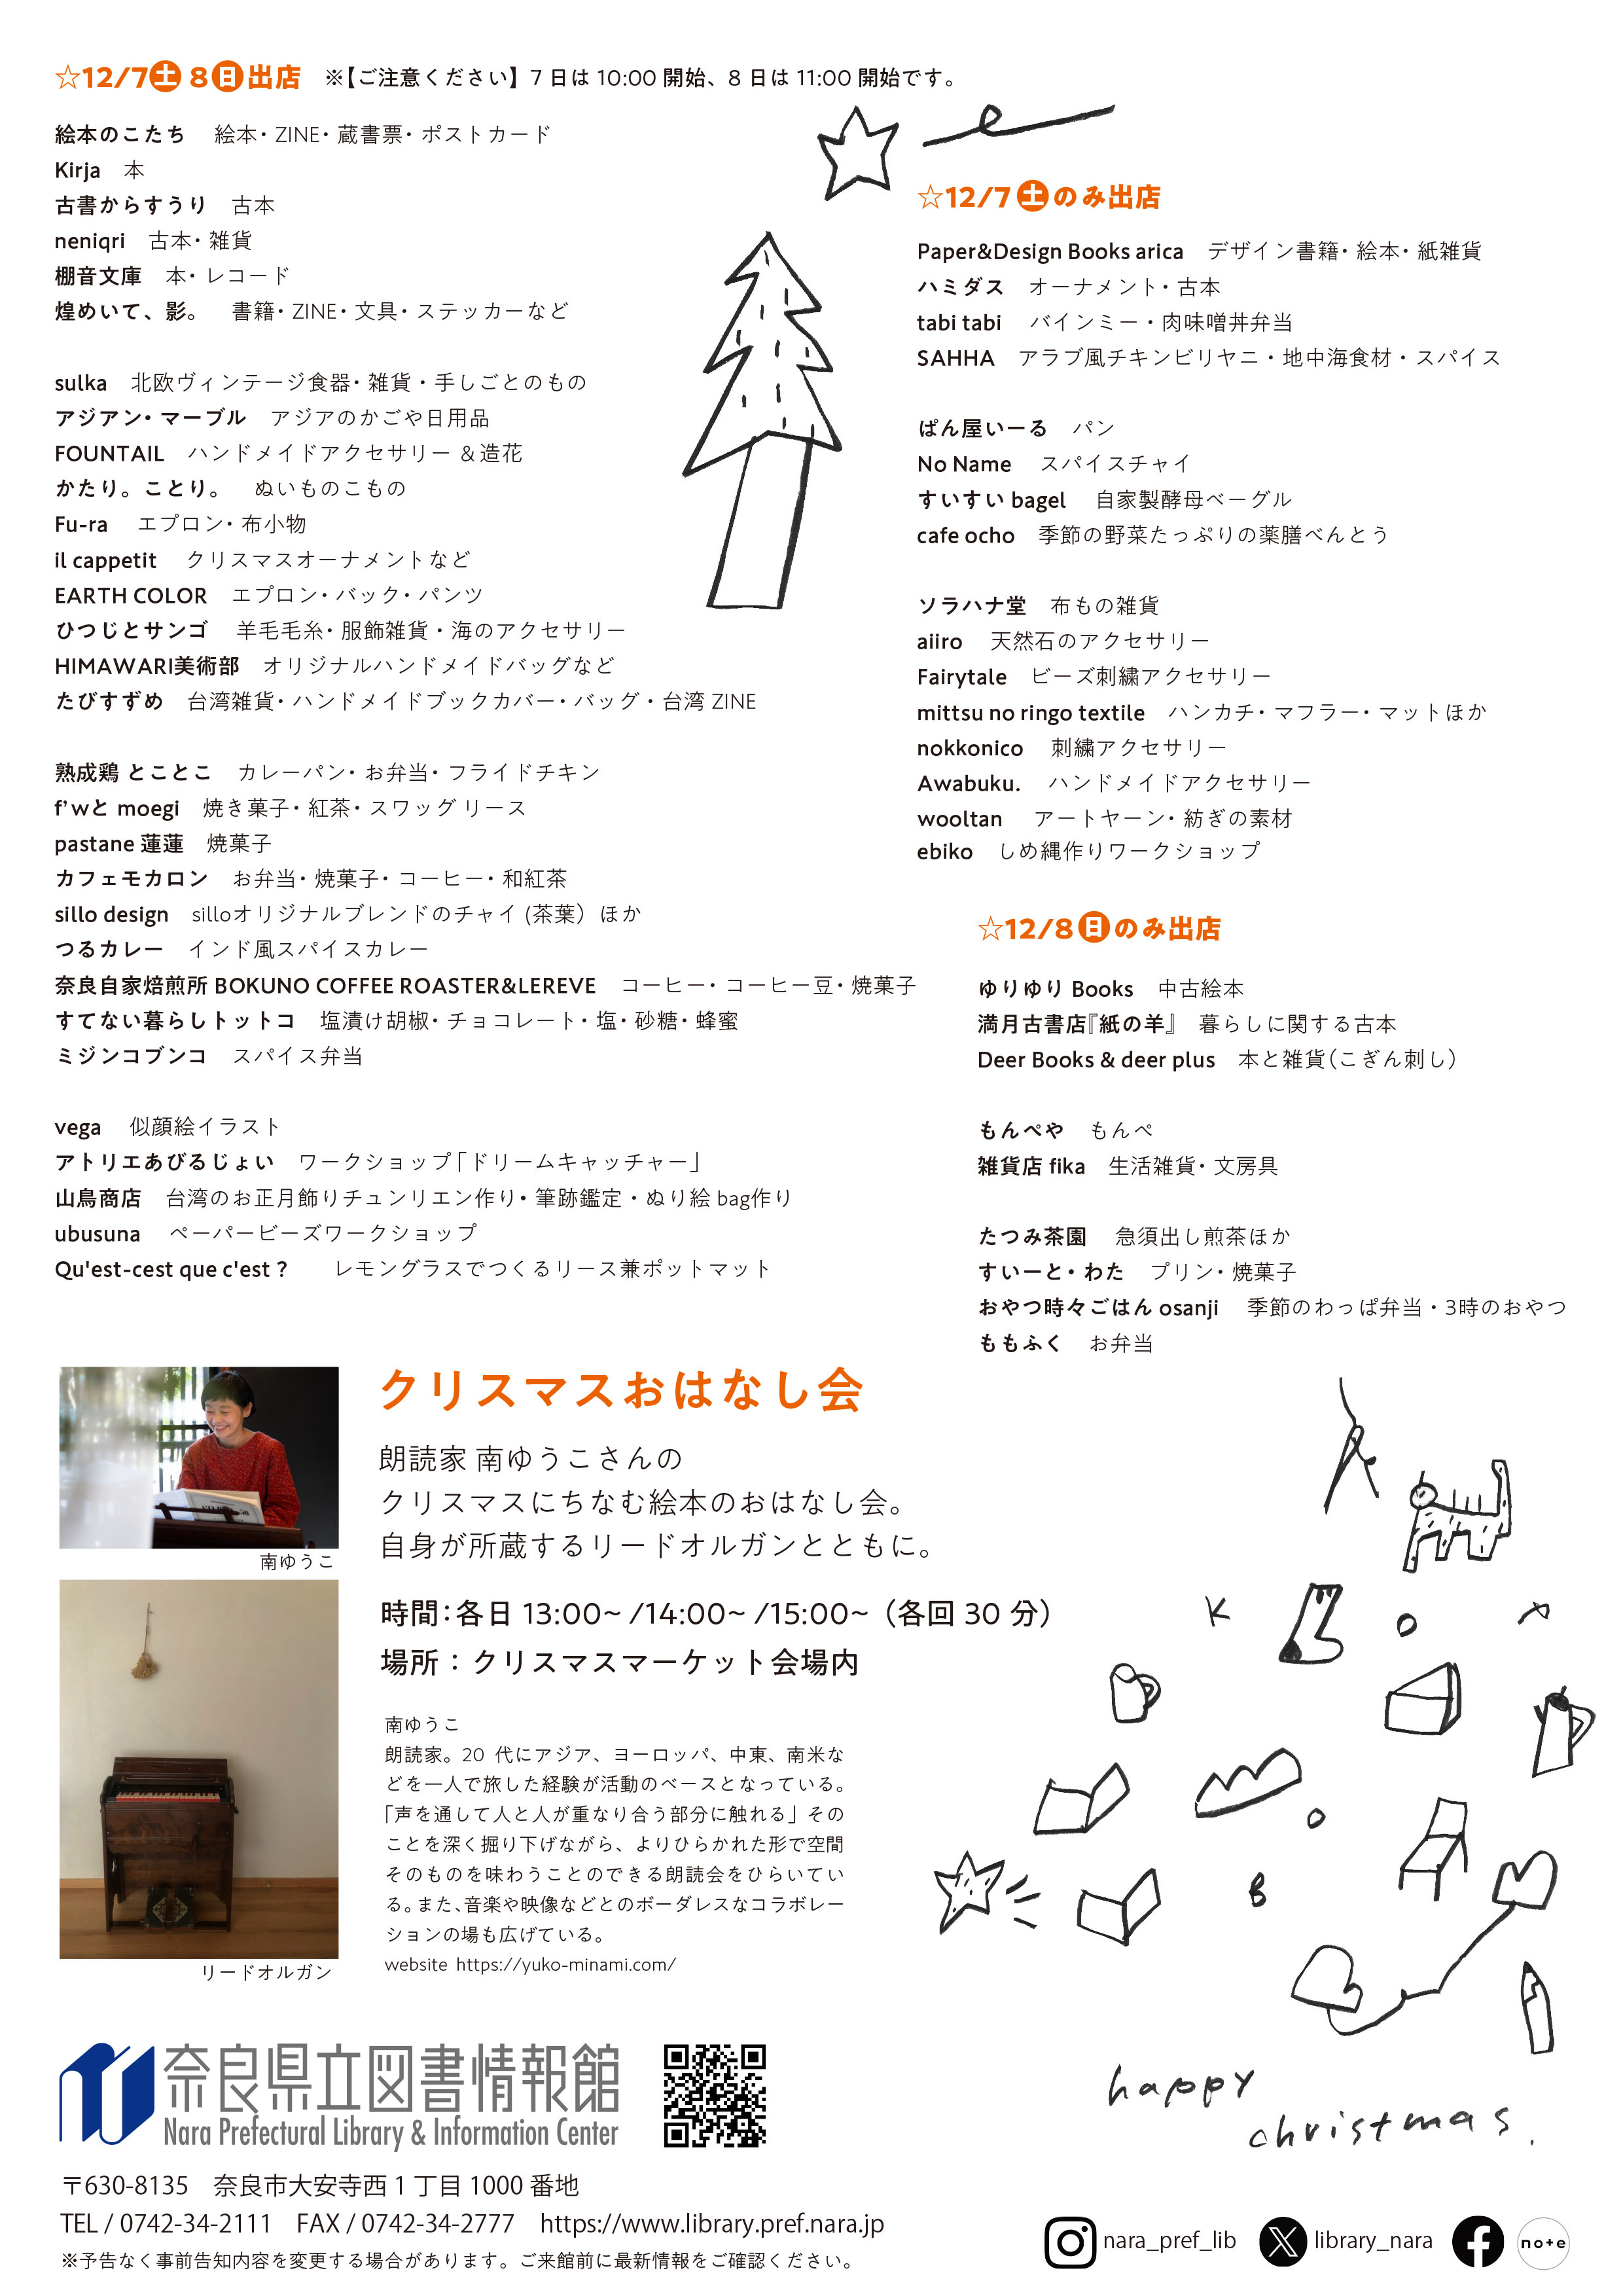 ☆12/7土 8日出店　※【ご注意ください】7日は10:00開始、8日は11:00開始です。
絵本のこたち　絵本・ZINE・蔵書票・ポストカード
Kirja　本
古書からすうり　古本
neniqri　古本・雑貨
棚音文庫　本・レコード
煌めいて、影。　書籍・ZINE・文具・ステッカーなど
sulka　北欧ヴィンテージ食器・雑貨・手しごとのもの
アジアン・マーブル　アジアのかごや日用品
FOUNTAIL　ハンドメイドアクセサリー ＆造花
かたり。ことり。　ぬいものこもの
Fu-ra　エプロン・布小物
il cappetit　クリスマスオーナメントなど
EARTH COLOR　エプロン・バック・パンツ
ひつじとサンゴ　羊毛毛糸・服飾雑貨・海のアクセサリー
HIMAWARI美術部　オリジナルハンドメイドバッグなど
たびすずめ　台湾雑貨・ハンドメイドブックカバー・バッグ・台湾 ZINE
熟成鶏 とことこ　カレーパン・お弁当・フライドチキン
f’wと moegi　焼き菓子・紅茶・スワッグ リース
pastane 蓮蓮　焼菓子
カフェモカロン　お弁当・焼菓子・コーヒー・和紅茶
sillo design　silloオリジナルブレンドのチャイ (茶葉）ほか
つるカレー　インド風スパイスカレー
奈良自家焙煎所 BOKUNO COFFEE ROASTER&LEREVE　コーヒー・コーヒー豆・焼菓子
すてない暮らしトットコ　塩漬け胡椒・チョコレート・塩・砂糖・蜂蜜
ミジンコブンコ　スパイス弁当
vega　似顔絵イラスト
アトリエあびるじょい　ワークショップ「ドリームキャッチャー」
山鳥商店　台湾のお正月飾りチュンリエン作り・筆跡鑑定・ぬり絵 bag作り
ubusuna　ペーパービーズワークショップ
Qu'est-cest que c'est ?　レモングラスでつくるリース兼ポットマット
☆12/7土のみ出店
Paper&Design Books arica　デザイン書籍・絵本・紙雑貨
ハミダス　オーナメント・古本
tabi tabi　バインミー・肉味噌丼弁当
SAHHA　アラブ風チキンビリヤニ・地中海食材・スパイス
ぱん屋いーる　パン
No Name　スパイスチャイ
すいすい bagel　自家製酵母ベーグル
cafe ocho　季節の野菜たっぷりの薬膳べんとう
ソラハナ堂　布もの雑貨
aiiro　天然石のアクセサリー
Fairytale　ビーズ刺繍アクセサリー
mittsu no ringo textile　ハンカチ・マフラー・マットほか
nokkonico　刺繍アクセサリー
Awabuku.　ハンドメイドアクセサリー
wooltan　アートヤーン・紡ぎの素材
ebiko　しめ縄作りワークショップ
☆12/8日のみ出店
ゆりゆり Books　中古絵本
満月古書店『紙の羊』　暮らしに関する古本
Deer Books & deer plus　本と雑貨（こぎん刺し）
もんぺや　もんぺ
雑貨店 fika　生活雑貨・文房具
たつみ茶園　急須出し煎茶ほか
すいーと・わた　プリン・焼菓子
おやつ時々ごはん osanji　季節のわっぱ弁当・3時のおやつ
ももふく　お弁当
クリスマスおはなし会
朗読家 南ゆうこさんの
クリスマスにちなむ絵本のおはなし会。
自身が所蔵するリードオルガンとともに。
時間：各日 13:00~ /14:00~ /15:00~（各回 30 分）
場所：クリスマスマーケット会場内
南ゆうこ
リードオルガン
南ゆうこ
朗読家。20 代にアジア、ヨーロッパ、中東、南米な
どを一人で旅した経験が活動のベースとなっている。
「声を通して人と人が重なり合う部分に触れる」その
ことを深く掘り下げながら、よりひらかれた形で空間
そのものを味わうことのできる朗読会をひらいてい
る。また、音楽や映像などとのボーダレスなコラボレー
ションの場も広げている。
website https://yuko-minami.com/
happy
christmas.
奈良県立図書情報館
Nara Prefectural Library & Information Center
〒630-8135　奈良市大安寺西 1 丁目 1000 番地
TEL / 0742-34-2111　FAX / 0742-34-2777　https://www.library.pref.nara.jp
※予告なく事前告知内容を変更する場合があります。ご来館前に最新情報をご確認ください。
nara_pref_lib　library_nara　note